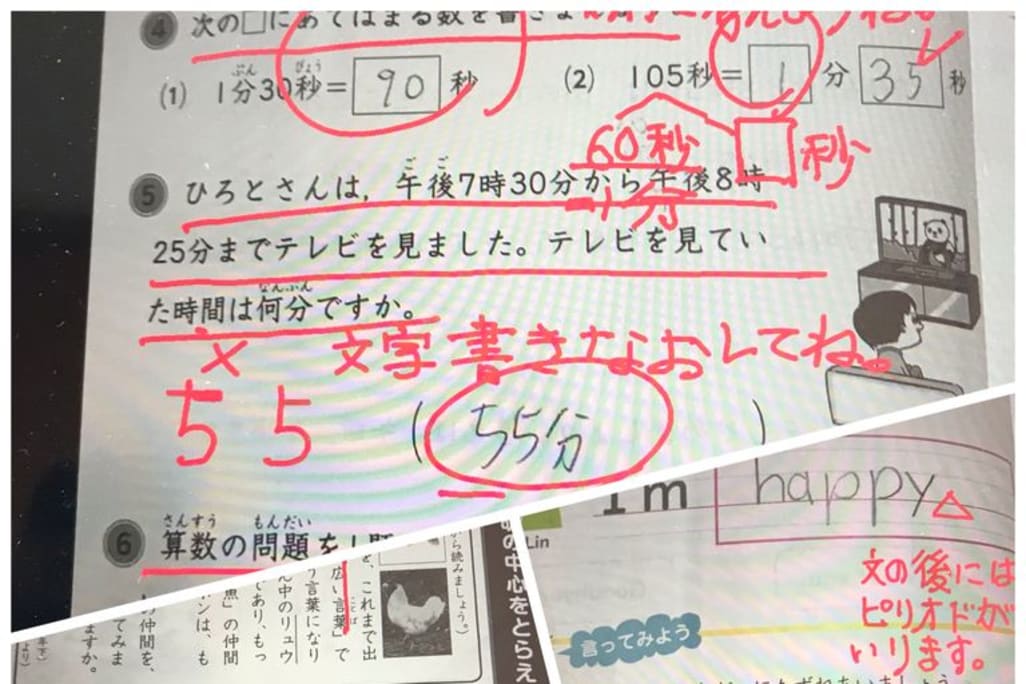 4 次の□にあてはまる数を書きな
(1) 1分30秒= 90 秒
ぶん びょう
(2) 105秒= 1 分 35 秒
60秒 □秒
1分
5 ひろとさんは，午後7時30分から午後8時
ごご
25分までテレビを見ました。テレビを見てい
た時間は何分ですか。
なんぷん
× 文字書きなおしてね。
ち 5
(55分)
6 算数の問題を1
さんすう もんだい
から読みましょう。)
を、これまで出
広い言葉」で
ことば
う言葉になり
ん中のリュウ
であり、もっ
魚」の仲間
ボンは、も
の仲間を、
てみま
ますか。
の中心をとらえ
Lin
I'm happy
文の後には
ピリオドが
いります。
言ってみよう